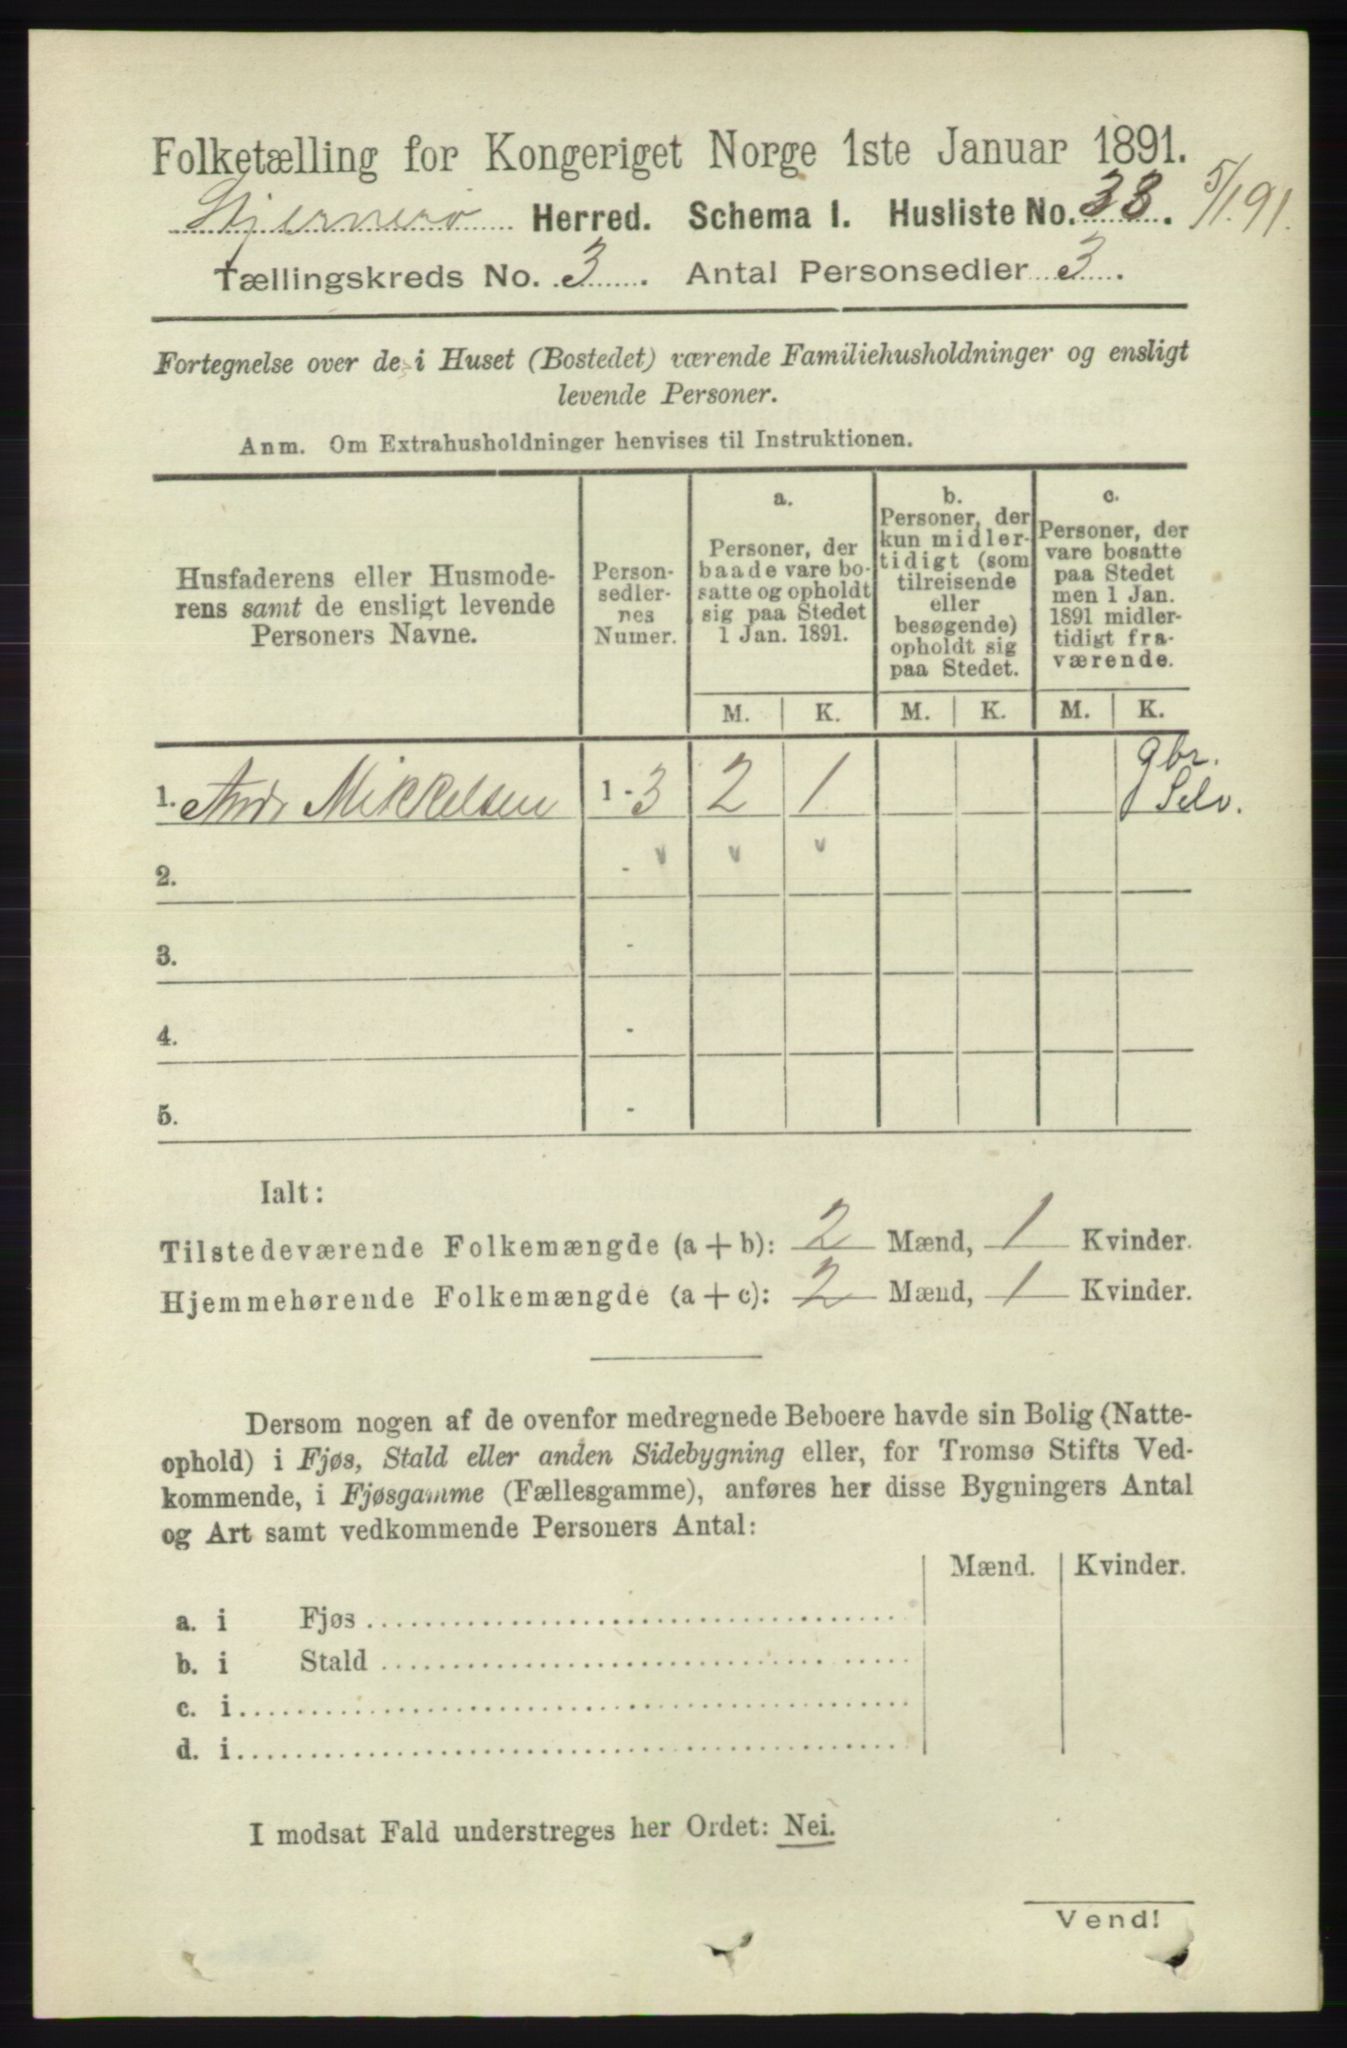 Folketælling for Kongeriget Norge 1ste Januar 1891.
Stjernerø Herred. Schema 1. Husliste No. 33. 5/1 91.
Tællingskreds No. 3. Antal Personsedler 3.
Fortegnelse over de i Huset (Bostedet) værende Familiehusholdninger og ensligt
levende Personer.
Anm. Om Extrahusholdninger henvises til Instruktionen.
Husfaderens eller Husmode-
rens samt de ensligt levende
Personers Navne.
Person-
sedler-
nes
Numer.
a.
Personer, der
baade vare bo-
satte og opholdt
sig paa Stedet
1 Jan. 1891.
b.
Personer, der
kun midler-
tidigt (som
tilreisende
eller
besøgende)
opholdt sig
paa Stedet.
c.
Personer, der
vare bosatte
paa Stedet
men 1 Jan.
1891 midler-
tidigt fra-
værende.
M. K. M. K. M. K.
1. Andr Mikkelsen 1 - 3 2 1 gbr.
Selv.
2. -
3. -
4. -
5. -
Ialt:
Tilstedeværende Folkemængde (a + b): 2 Mænd, 1 Kvinder.
Hjemmehørende Folkemængde (a + c): 2 Mænd, 1 Kvinder.
Dersom nogen af de ovenfor medregnede Beboere havde sin Bolig (Natte-
ophold) i Fjøs, Stald eller anden Sidebygning eller, for Tromsø Stifts Ved-
kommende, i Fjøsgamme (Fællesgamme), anføres her disse Bygningers Antal
og Art samt vedkommende Personers Antal:
Mænd. Kvinder.
a. i Fjøs
b. i Stald
c. i
d. i
I modsat Fald understreges her Ordet: Nei.
Vend!